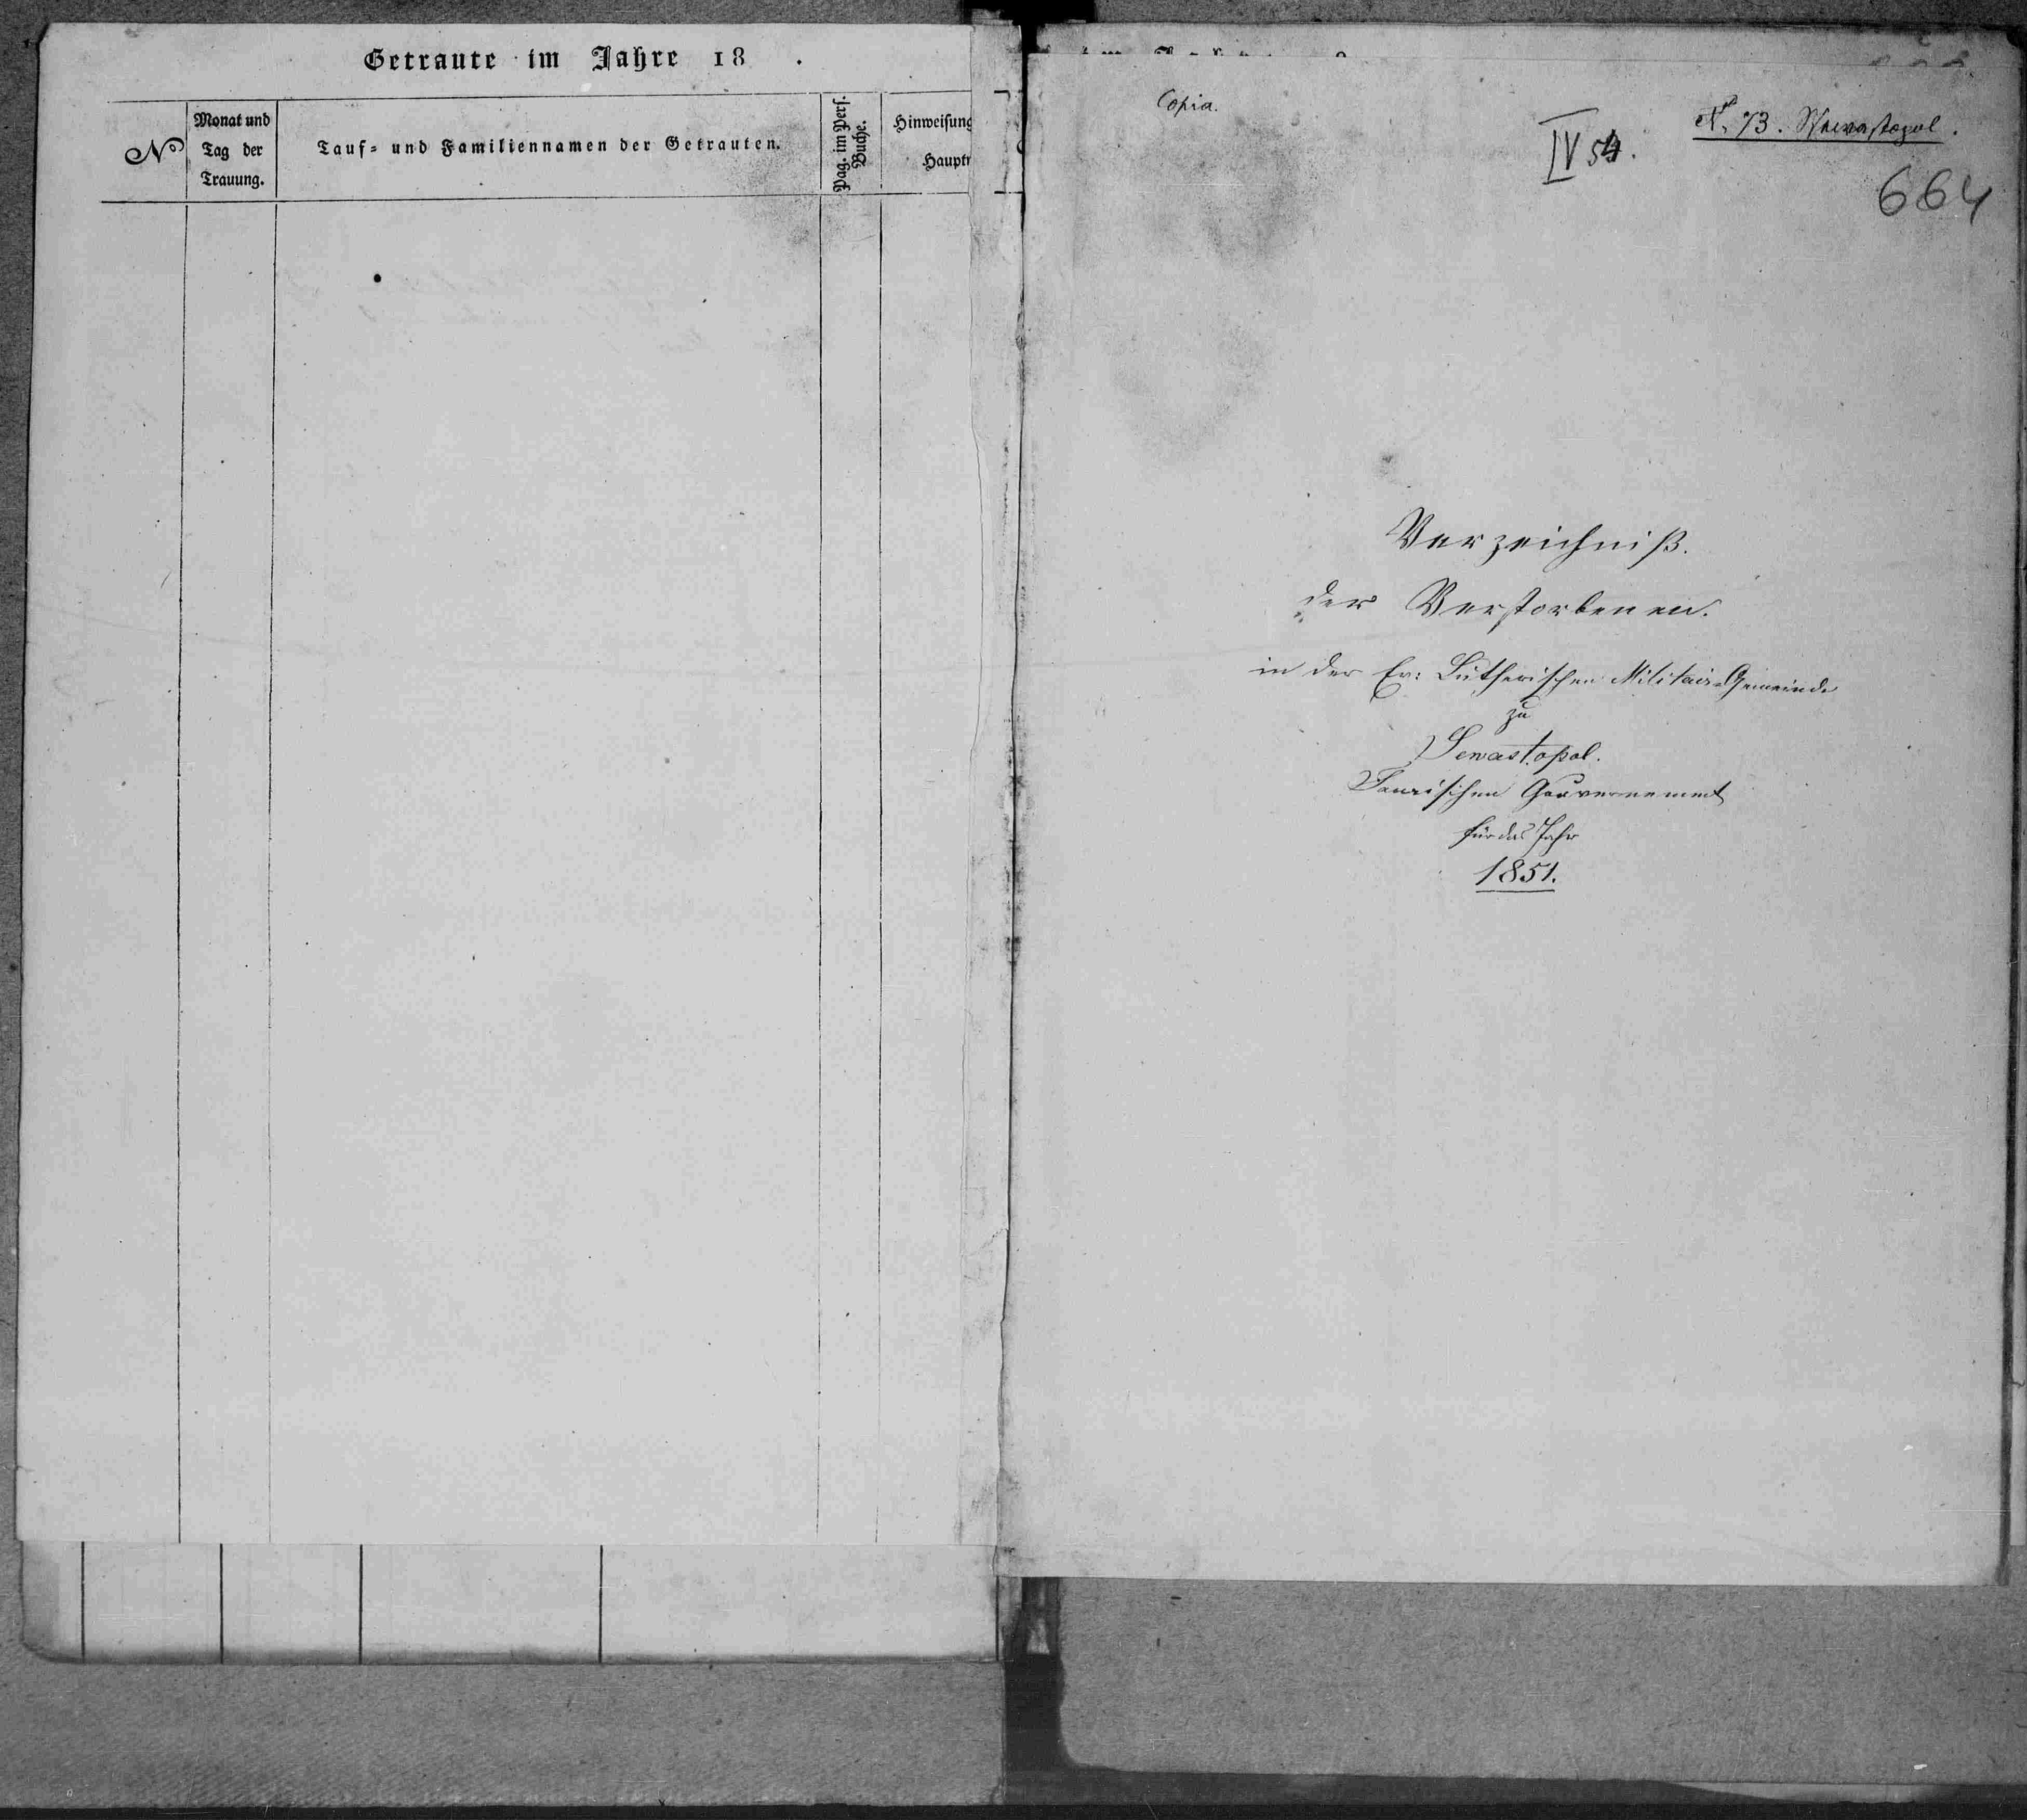 Getraute im Jahre 18 .
No
Monat und
Tag der
Trauung.
Tauf- und Familiennamen der Getrauten.
Pag. im Pers.
Buche.
Hinweisung
Haupt
Copia.
IV 54.
No 73. Sewastopol.
664
Verzeichniß.
der Verstorbenen.
in der Ev: Lutherischen Militair-Gemeinde
zu
Sewastopol.
Taurischen Gouvernement
für das Jahr
1851.